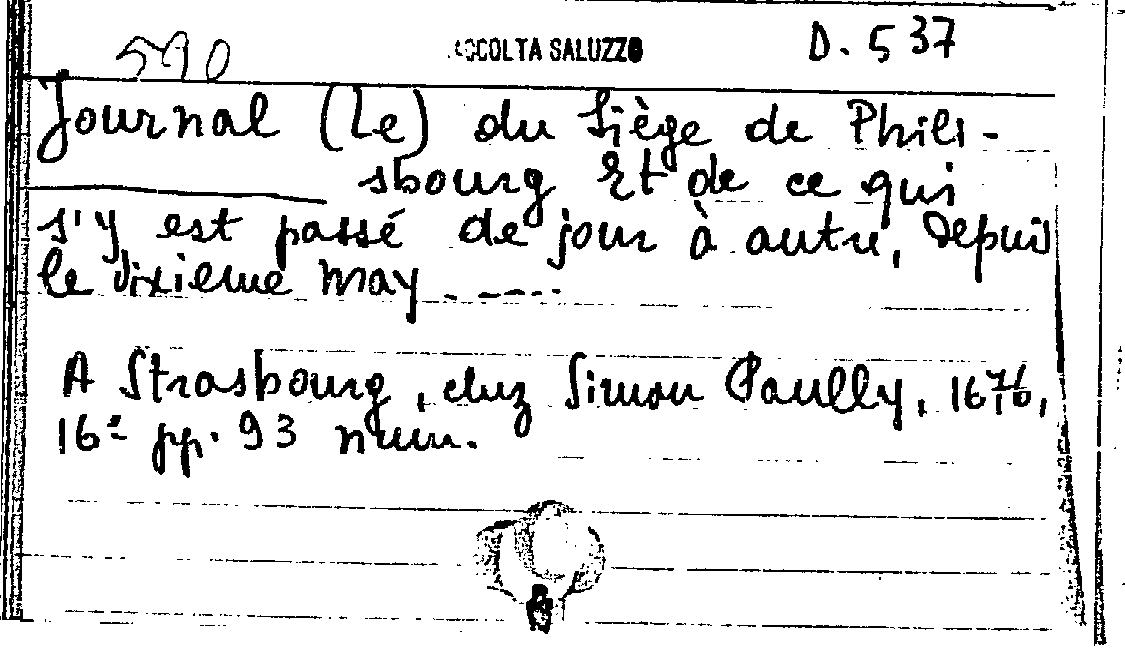 590 RACCOLTA SALUZZO D. 537
Journal (Le) du Siège de Phili-
sbourg Et de ce qui
s'y est passé de jour à autre, Depuis
le dixieme May . -----
A Strasbourg, chez Simon Paully, 1676,
16º pp. 93 num.